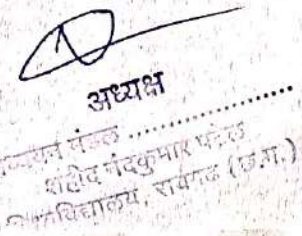 अध्यक्ष
अध्ययन मंडल ....................
शहीद नंदकुमार पटेल
विश्वविद्यालय, रायगढ (छ.ग.)